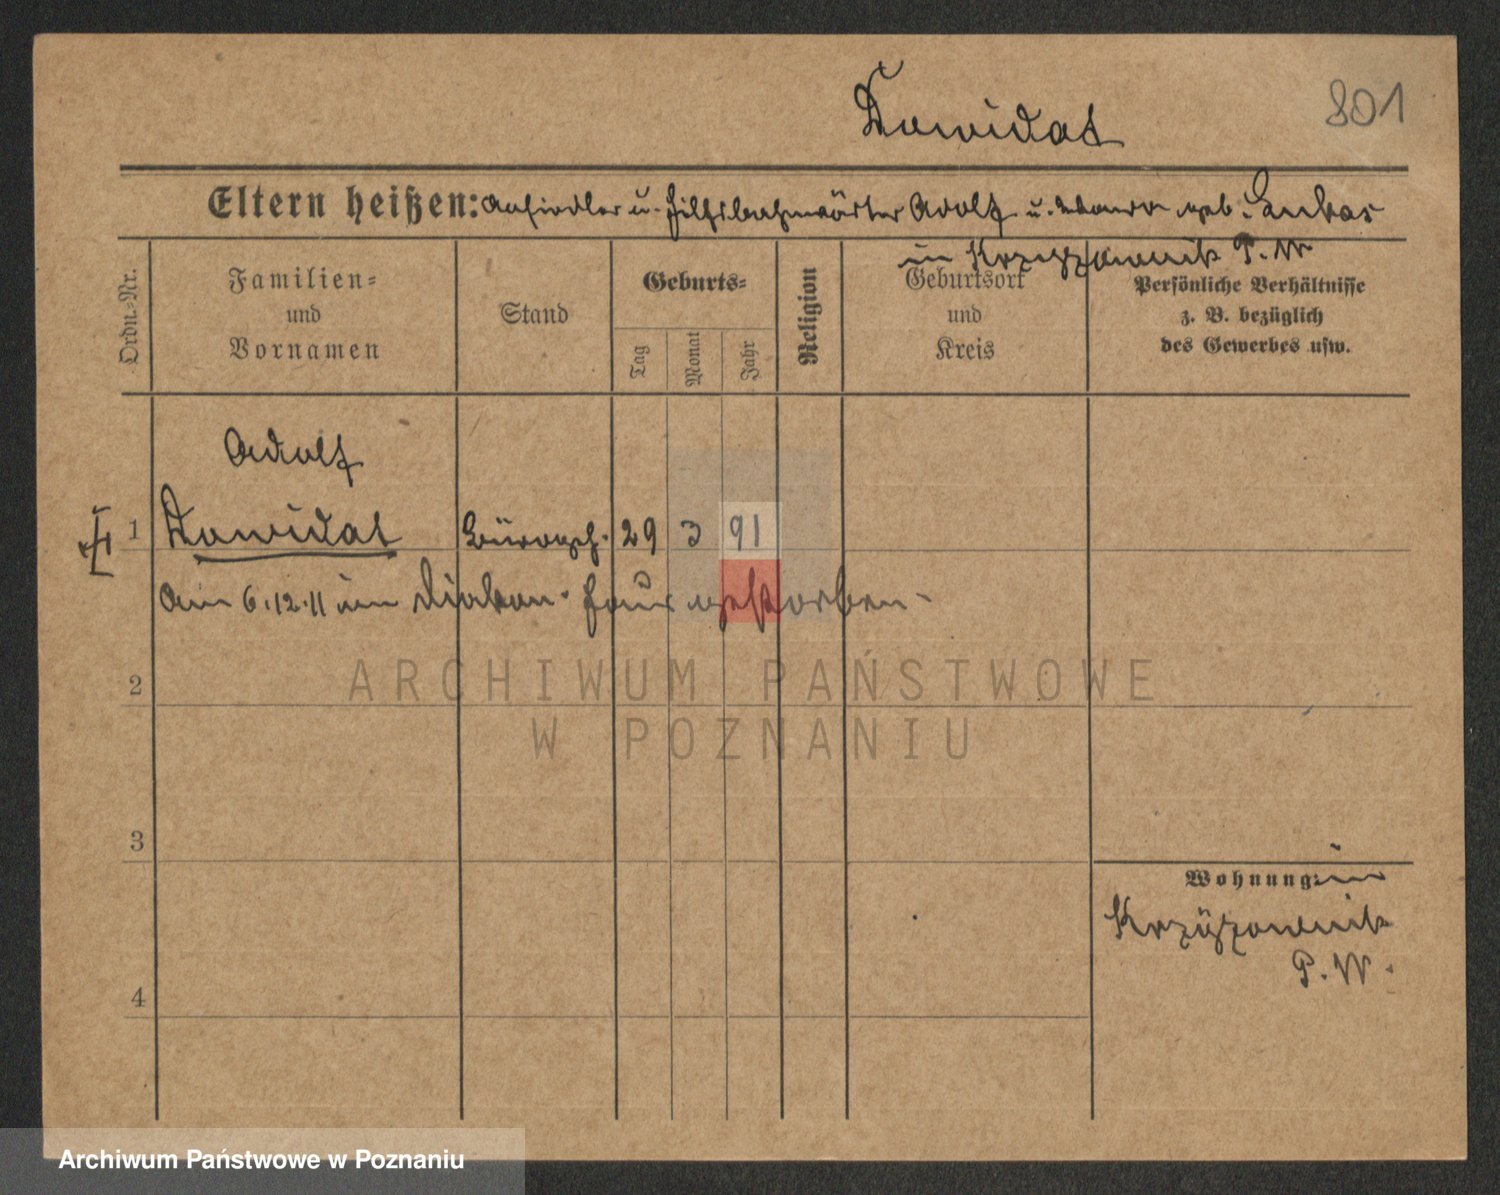 Dawidat
801
Eltern heißen: Ansiedler u. Hilfsbahnwärter Adolf u. geb.
in Krzyżownik P. W
Ordn.-Nr.
Familien-
und
Vornamen
Stand
Geburts-
Tag
Monat
Jahr
Religion
Geburtsort
und
Kreis
Persönliche Verhältnisse
z. B. bezüglich
des Gewerbes usw.
Adolf
1 Dawidat Bürogeh. 29 3 91
Am 6.12.11 im Diakon. Haus gestorben.
2
ARCHIWUM PAŃSTWOWE
W POZNANIU
3
Wohnung: in
Krzyżownik
P. W.
4
Archiwum Państwowe w Poznaniu